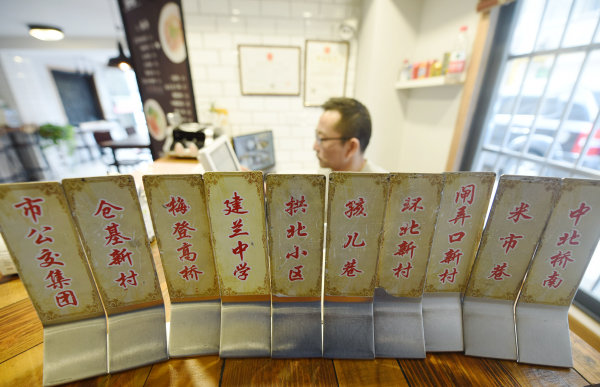 市公交集团
仓基新村
梅登高桥
建兰中学
拱北小区
孩儿巷
环北新村
闸弄口新村
米市巷
中北桥南